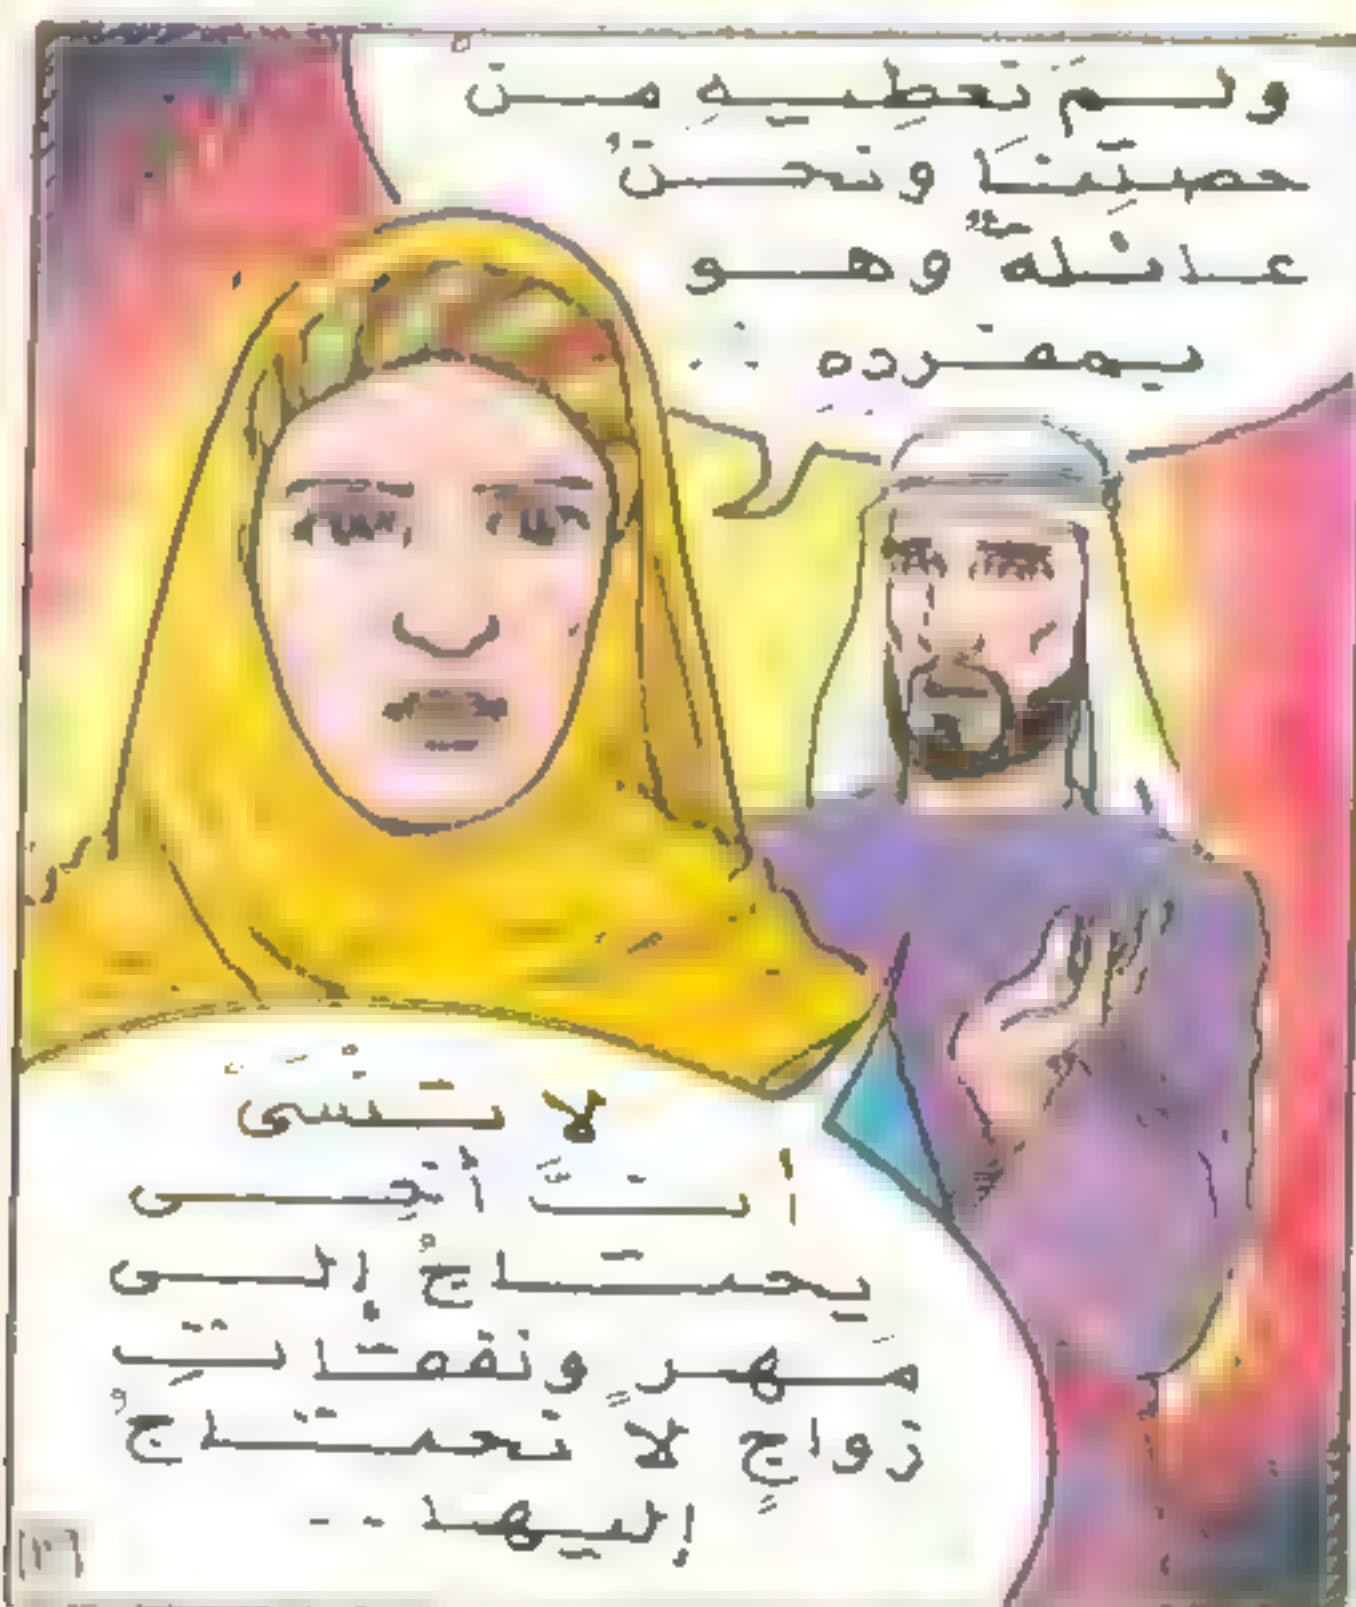 ولم تعطِيهِ من
حصتِنَا ونحنُ
عائلةٌ وهو
بمفرده ..
لا تنسَىْ
أنتَ أخِى
يحتاجُ إلى
مَهرٍ ونفقاتِ
زواجٍ لا نحتاجُ
إليها ..